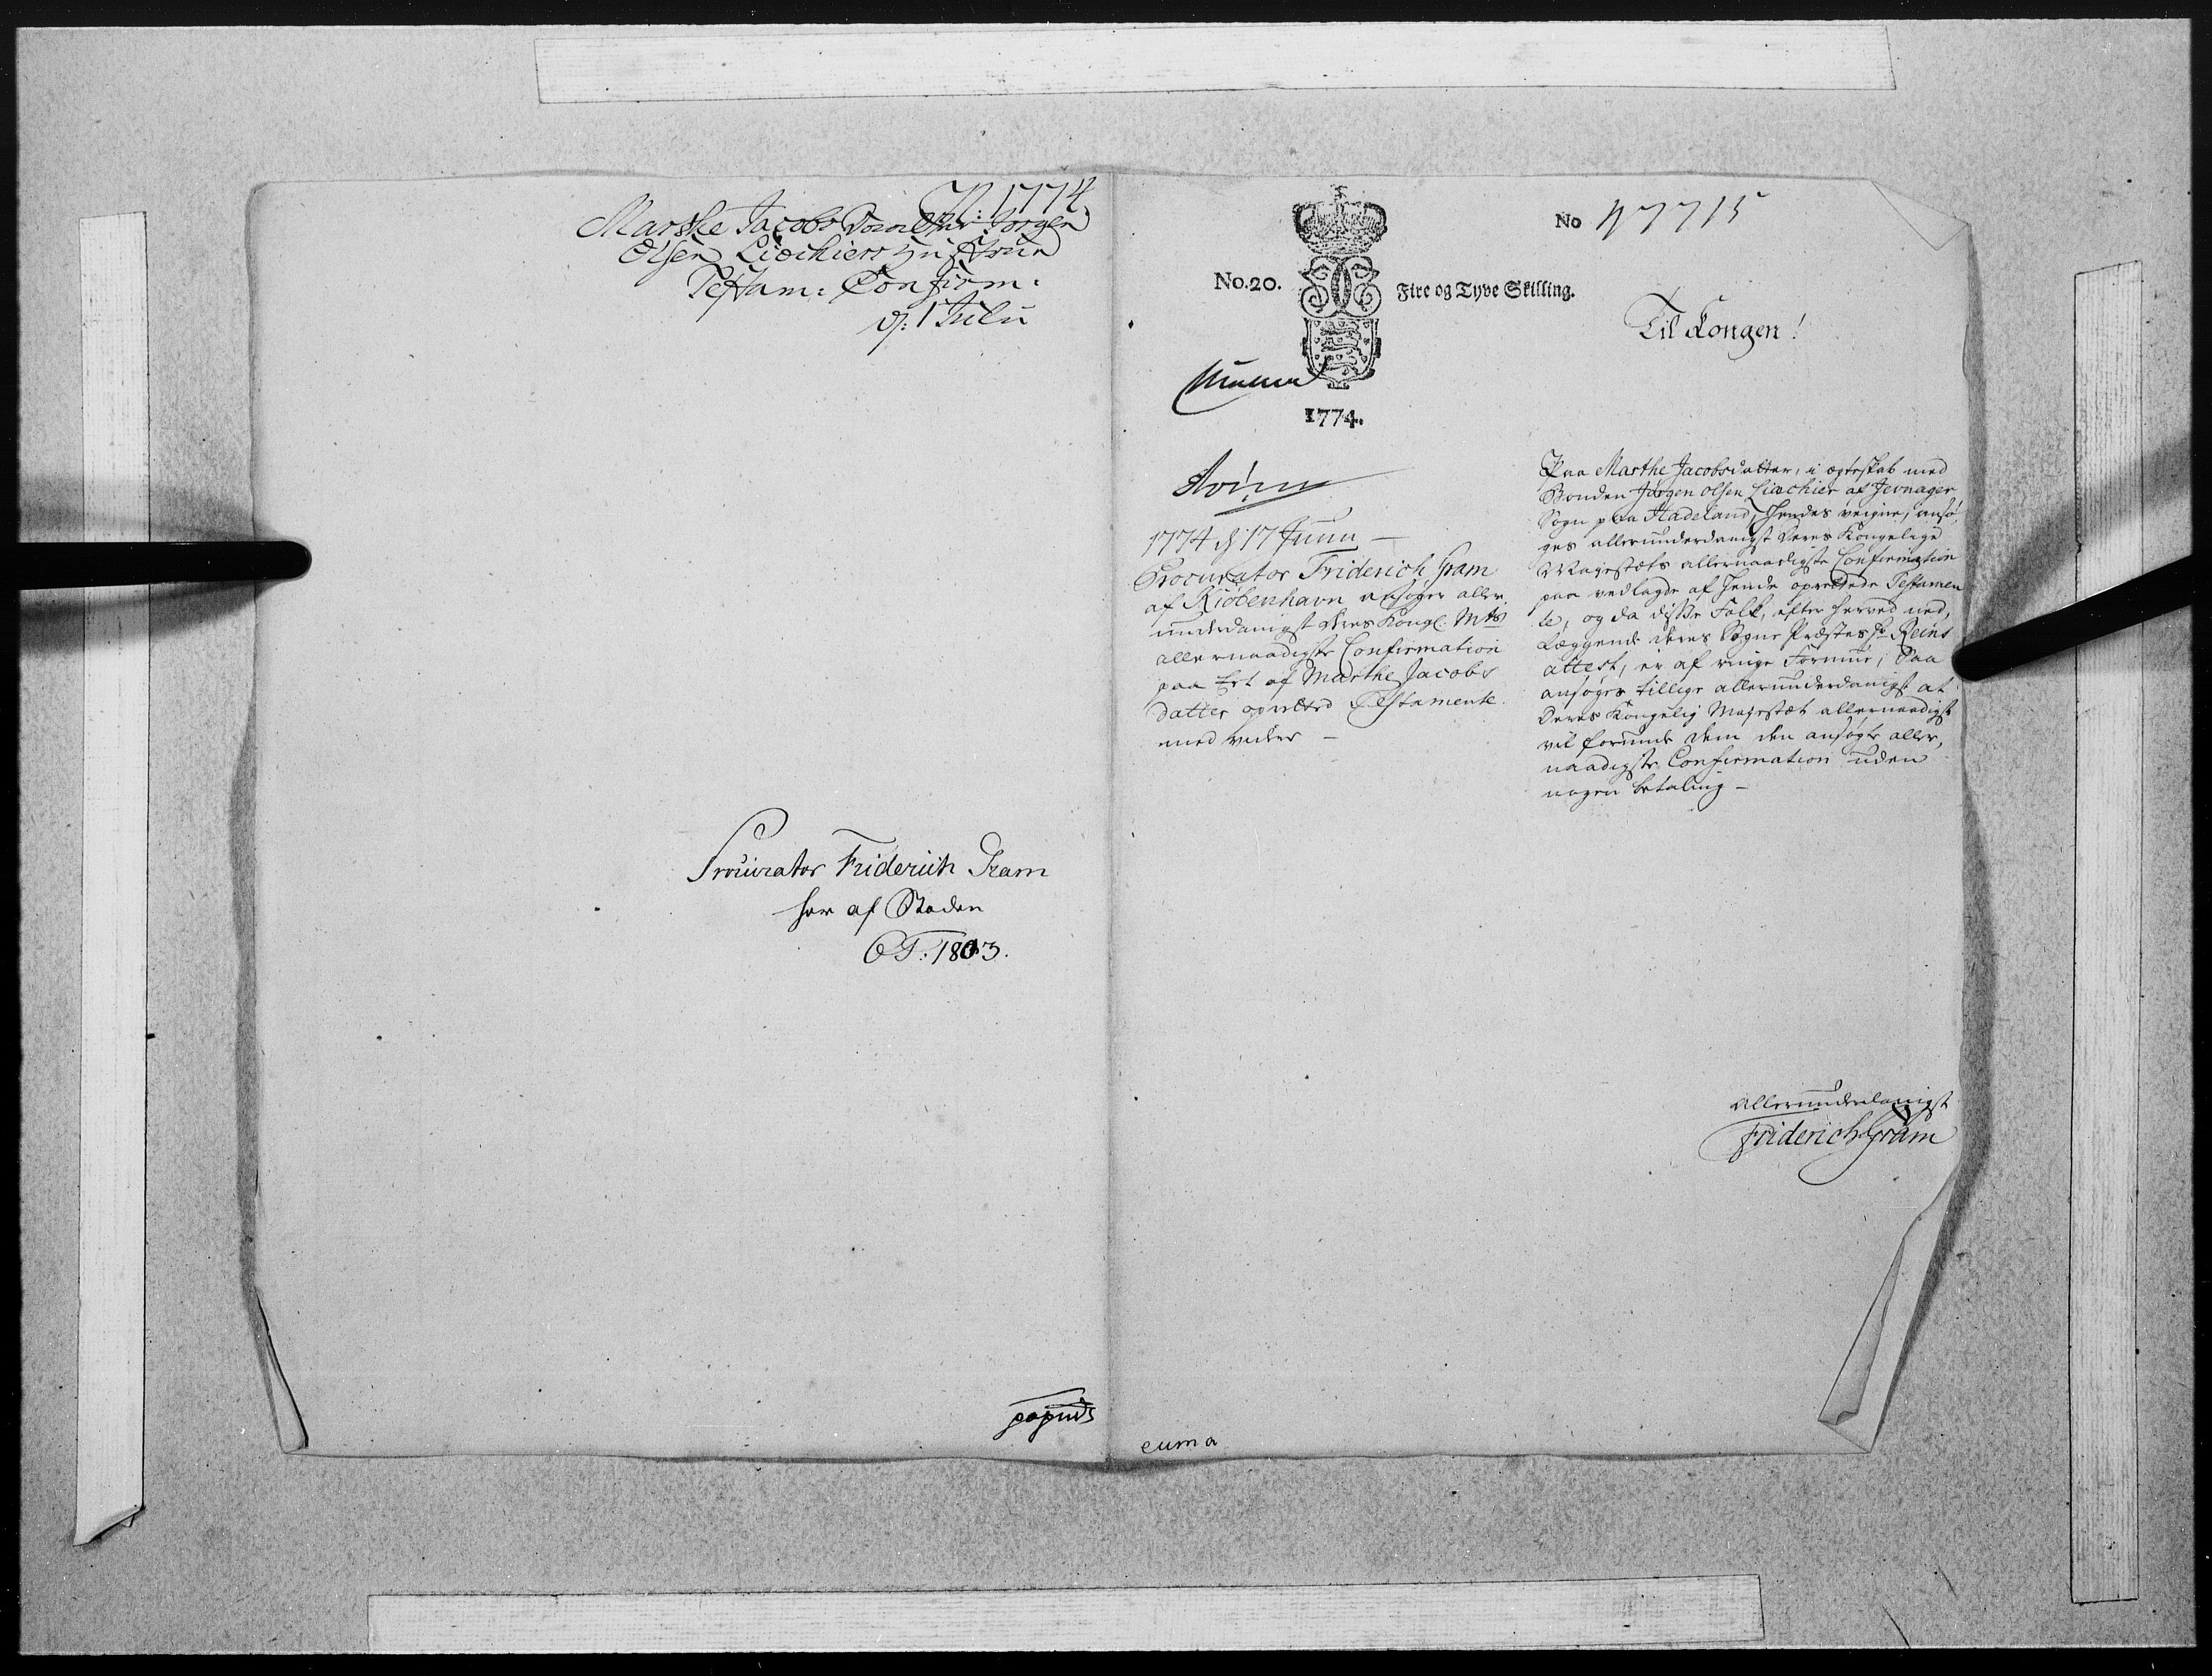 N: 1774
Marthe Jacobs Datter Jørgen
Olsen Liøchiers Hustrue
Testam: Confirm:
d: 1 Julii
Procurator Friderich Gram
her af Staden
1803.
No 47715
No. 20. Fire og Tyve Skilling.
Til Kongen!
1774.
1774 d 17 Junii
Procurator Friderich Gram
af Kiöbenhavn ansøger aller
underdanigst Deres Kongl. Mts
allernaadigste Confirmation
paa Et af Marthe Jacobs
datter opretted Testamente
med videre
Paa Marthe Jacobsdatter, i ægteskab med
Bonden Jørgen Olsen Liøchier af Jevnager
Sogn paa Hadeland, Hendes veigne, ansø,
ges allerunderdanigst Deres Kongelige
Mayestæts allernaadigste Confirmation
paa vedlagde af Hende oprettede Testamen
te, og da disse Folk, efter herved ned,
læggende deres Sogne Præstes Hr Reins
attest, er af ringe Formue, Saa
ansøges tillige allerunderdanigst at
Deres Kongelig Mayestæt allernaadigst
vil forunde dem den ansøgte aller,
naadigste Confirmation uden
nogen betaling
Allerunderdanigst
Friderich Gram